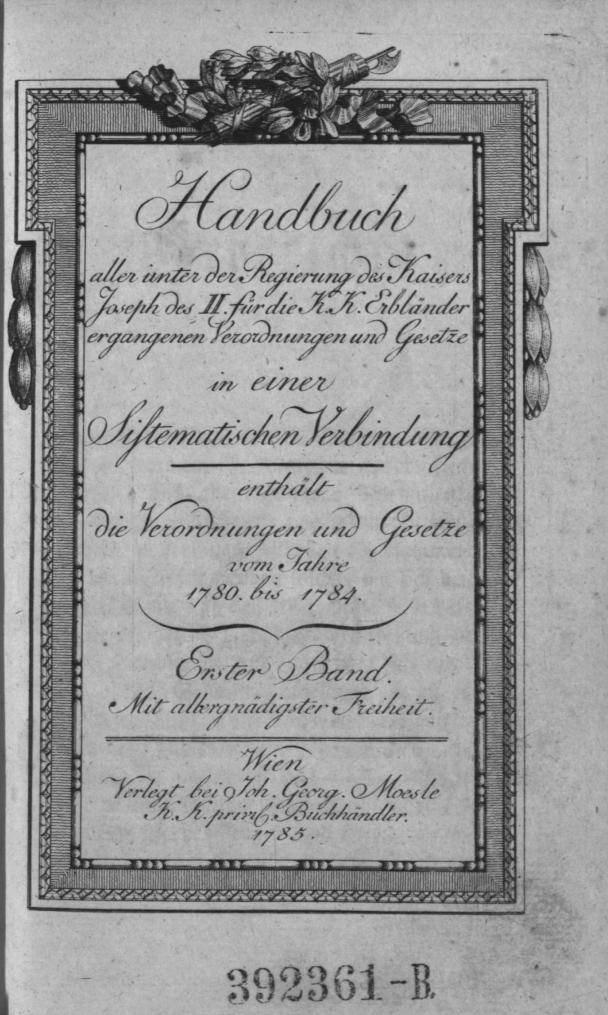 Handbuch
aller unter der Regierung des Kaisers
Joseph des II. für die K. K. Erbländer
ergangenen Verordnungen und Gesetze
in einer
Sistematischen Verbindung
enthält
die Verordnungen und Gesetze
vom Jahre
1780. bis 1784.
Erster Band.
Mit allergnädigster Freiheit.
Wien
Verlegt bei Joh. Georg. Moesle
K. K. privil. Buchhändler.
1785.
392361-B.